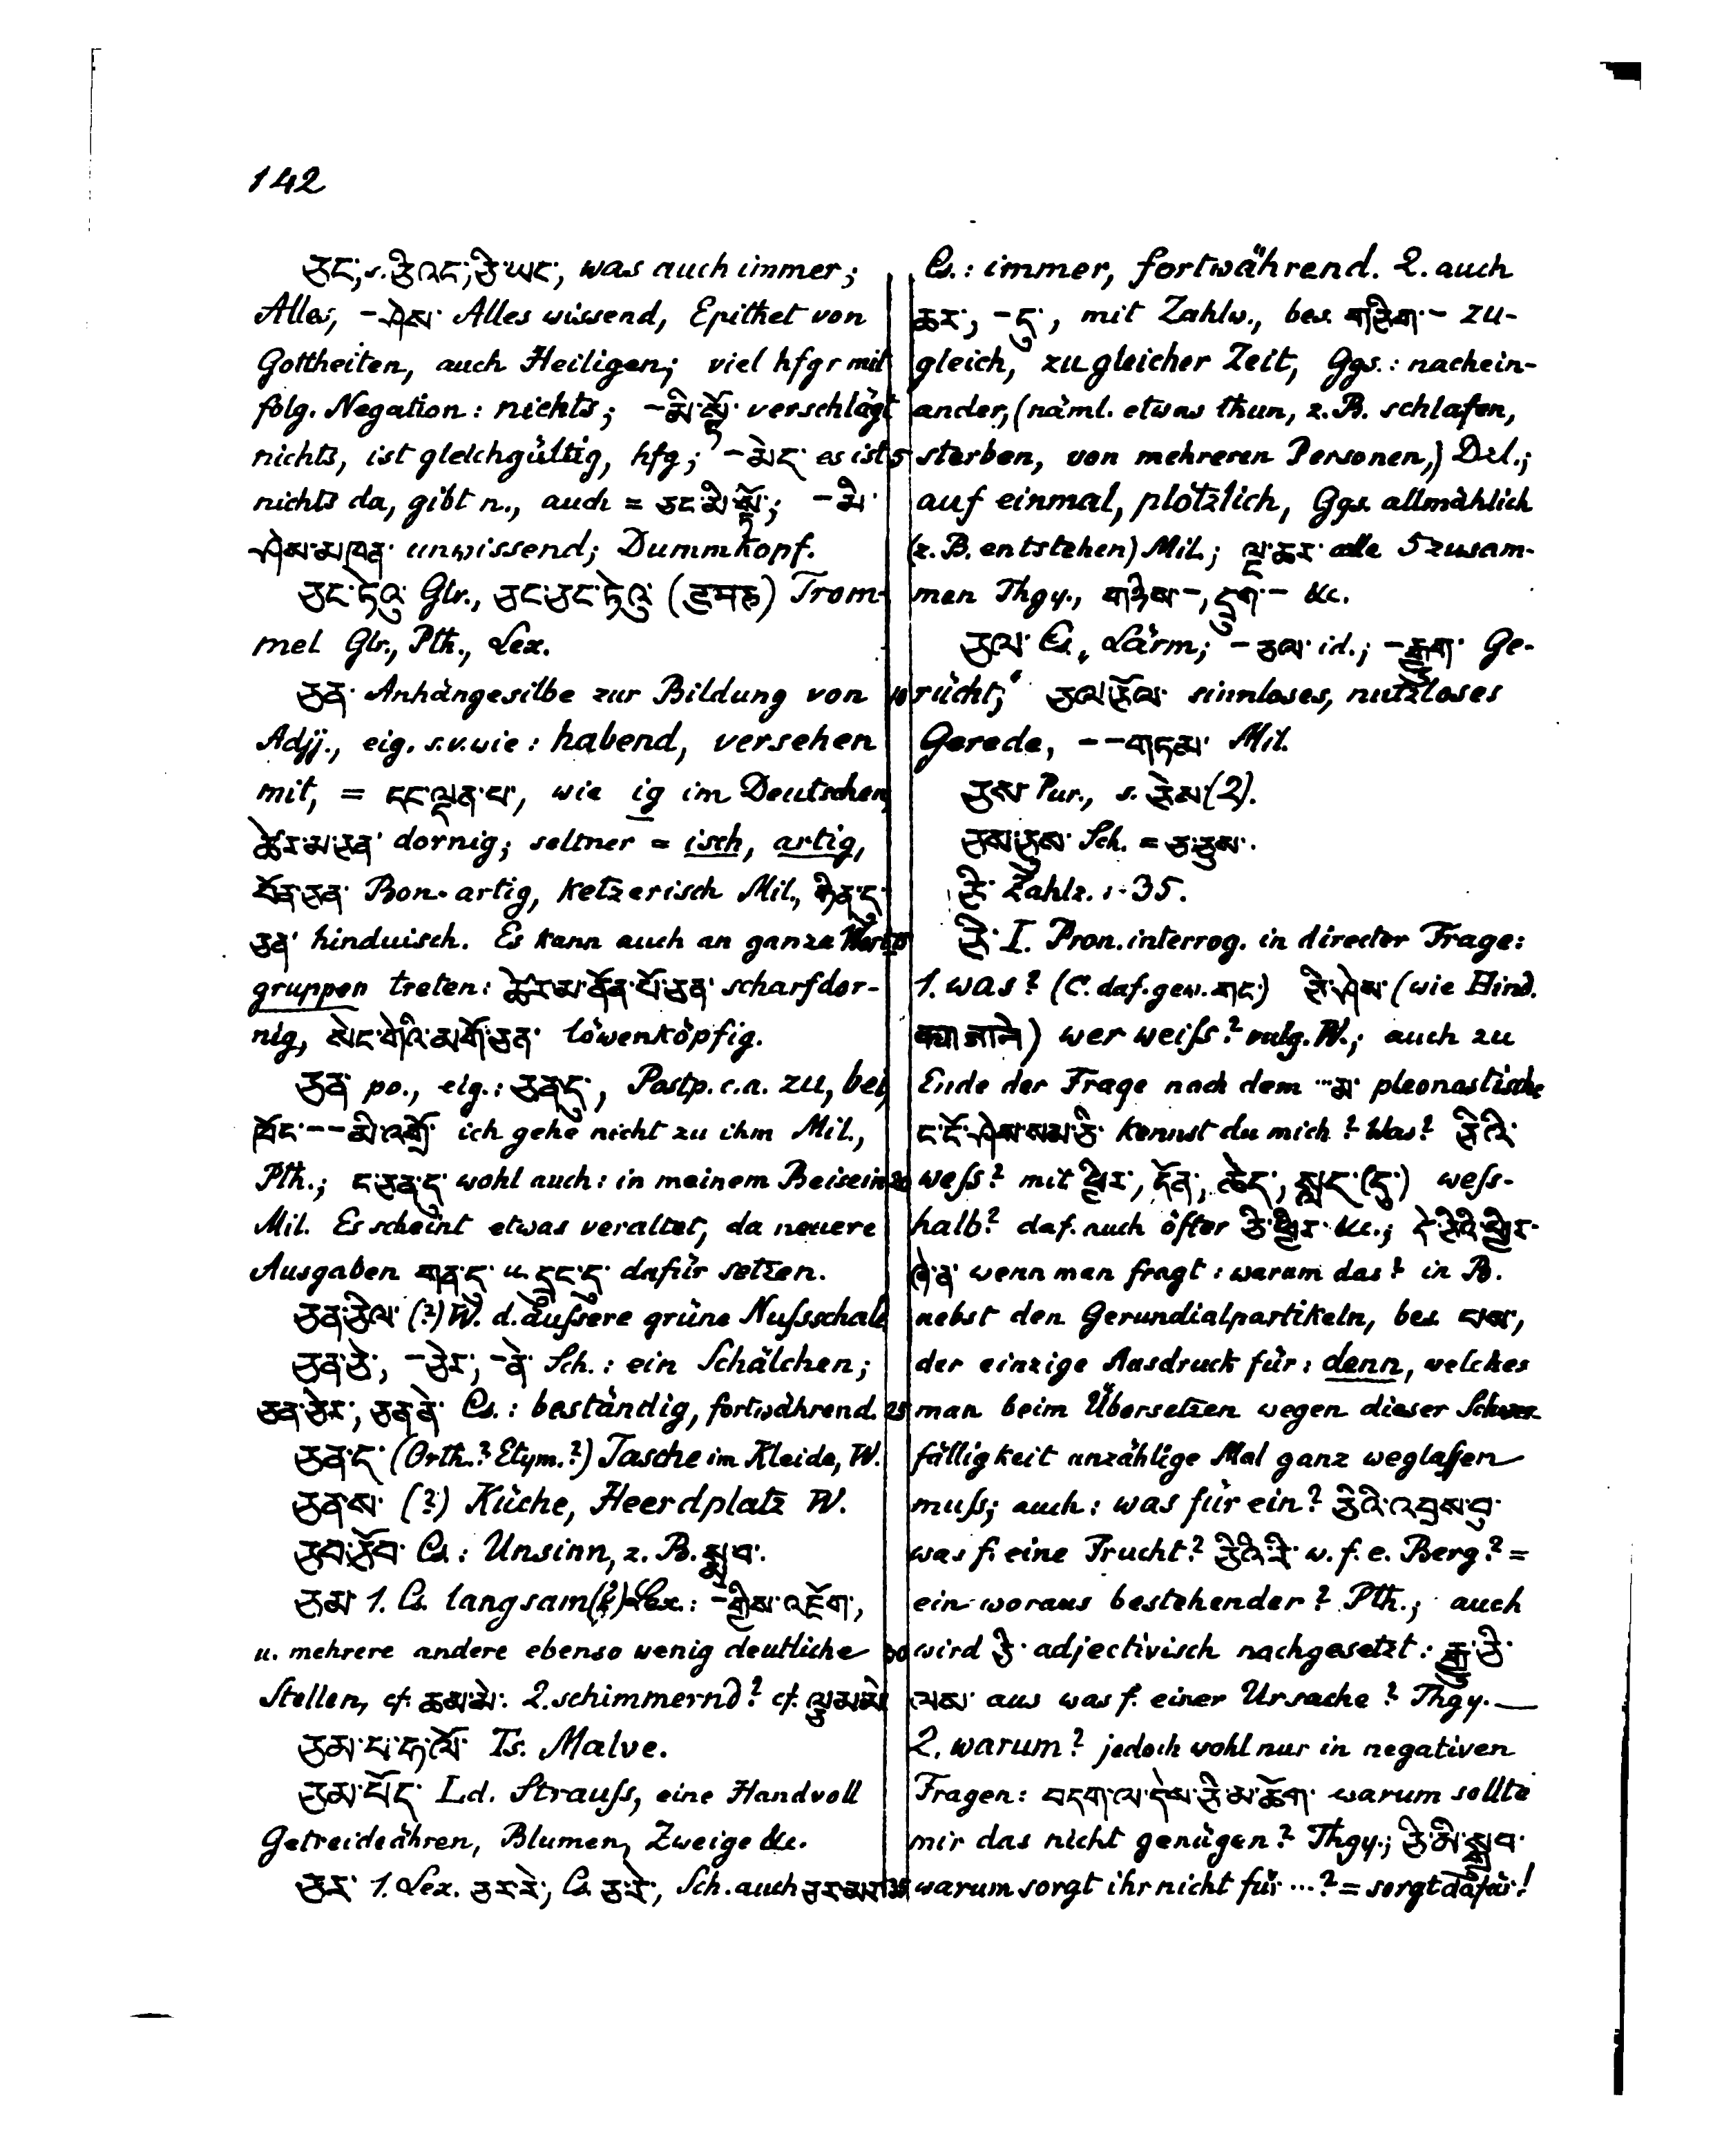 142
ཅང, s. ཅིའང, ཅི་ཡང, was auch immer;
Alles, –ཤེས་ Alles wissend, Epithet von
Gottheiten, auch Heiligen; viel hfgr mit
folg. Negation: nichts; –མི་སྟོ་ verschlägt
nichts, ist gleichgültig, hfg; –མེད་ es ist
nichts da, gibt n., auch = ཅང་མི་སྟོ; –མི་
ཤེས་མཁན་ unwissend; Dummkopf.
ཅང་ཏེའུ་ Glr., ཅང་ཅང་ཏེའུ་ (डमरु) Trom-
mel Glr., Pth., Lex.
ཅན་ Anhängesilbe zur Bildung von
Adjj., eig. s.v.wie: habend, versehen
mit, = དང་ལྡན་པ་, wie ig im Deutschen,
ཚེར་མ་ཅན་ dornig; seltner = isch, artig,
བོན་ཅན་ Bon-artig, ketzerisch Mil.,
ཅན་ hinduisch. Es kann auch an ganze Wort
gruppen treten: ཚེར་མ་རྣོན་པོ་ཅན་ scharfdor-
nig, སེང་གེའི་མགོ་ཅན་ löwenköpfig.
ཅན་ po., eig.: ཅན་དུ, Postp. c.a. zu, bei,
ཁོང་––མི་འགྲོ་ ich gehe nicht zu ihm Mil.,
Pth.; ང་ཅན་དུ་ wohl auch: in meinem Beisein
Mil. Es scheint etwas veraltet, da neuere
Ausgaben གན་དུ་ u. དྲུང་དུ་ dafür setzen.
ཅན་ཅིལ་ (?) W. d. äußere grüne Nußschale
ཅན་ཅེ་, –ཅེར་, –ནེ་ Sch.: ein Schälchen;
ཅན་ཅེར་, ཅན་ནེ་ Cs.: beständig, fortwährend.
ཅན་ད་ (Orth.? Etym.?) Tasche im Kleide, W.
ཅན་ས་ (?) Küche, Heerdplatz W.
ཅབ་ཅོབ་ Cs.: Unsinn, z. B. སྨྲ་བ་.
ཅམ་ 1. Cs. langsam(?) Lex.: –གྱིས་འཇོག་,
u. mehrere andere ebenso wenig deutliche
Stellen, cf. ཆམ་མེ་. 2. schimmernd? cf. ལྷམ་མེ
ཅམ་པ་ཧ་ལོ་ Ts. Malve.
ཅམ་པོད་ Ld. Strauß, eine Handvoll
Getreideähren, Blumen, Zweige &c.
ཅར་ 1. Lex. ཅར་རེ་, Cs ཅ་རེ་, Sch. auch
Cs.: immer, fortwährend. 2. auch
ཆར་, –དུ་, mit Zahlw., bes. གཅིག་– zu-
gleich, zu gleicher Zeit, Ggs.: nachein-
ander, (näml. etwas thun, z. B. schlafen,
5 sterben, von mehreren Personen,) Dzl.;
auf einmal, plötzlich, Ggs. allmählich
(z. B. entstehen) Mil.; ལྔ་ཆར་ alle 5 zusam-
men Thgy., གཉིས་–, དྲུག་– &c.
ཅལ་ Cs., Lärm; –ཅལ་ id.; –རྒྱག་ Ge-
10 rücht; ཅལ་ཅོལ་ sinnloses, nutzloses
Gerede, ––གཏམ་ Mil.
ཅས་ Pur., s. ཅེས་ (2).
ཅས་ཅུས་ Sch. = ཅ་ཅུས་.
ཅི་ Zahlz.: 35.
ཅི་ I. Pron. interrog. in directer Frage:
1. was? (C. daf. gew. གང་) ཅི་ཤེས་ (wie Hind.
क्या जाने) wer weiß? vulg. W.; auch zu
Ende der Frage nach dem ...མ་ pleonastisch
ང་ངོ་ཤེས་སམ་ཅི་ kennst du mich? Was? ཅིའི་
20 weß? mit ཕྱིར་, དོན་, ཆེད་, སླད་(དུ་) weß-
halb? daf. auch öfter ཅི་ཕྱིར་ &c.; དེ་ཅིའི་ཕྱིར་
ཞེ་ན་ wenn man fragt: warum das? in B.
nebst den Gerundialpartikeln, bes. པས,
der einzige Ausdruck für: denn, welches
25 man beim Übersetzen wegen dieser Schwer-
fälligkeit unzählige Mal ganz weglaßen
muß; auch: was für ein? ཅིའི་འབྲས་བུ་
was f. eine Frucht? ཅིའི་རི་ w. f. e. Berg? =
ein woraus bestehender? Pth.; auch
30 wird ཅི་ adjectivisch nachgesetzt: རྒྱུ་ཅི་
ལས་ aus was f. einer Ursache? Thgy. —
2. warum? jedoch wohl nur in negativen
Fragen: བདག་ལ་དེས་ཅི་མ་ཆོག་ warum sollte
mir das nicht genügen? Thgy.; ཅི་མི་སྒྲུབ་
35 warum sorgt ihr nicht für ...? = sorgt dafür!